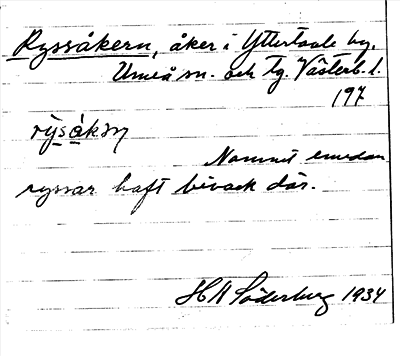 Ryssåkern, åker i Yttertavle by,
Umeå sn. och tg. Västerb. l.
197
Namnet emedan
ryssar haft bivack där.
H A Söderberg 1934